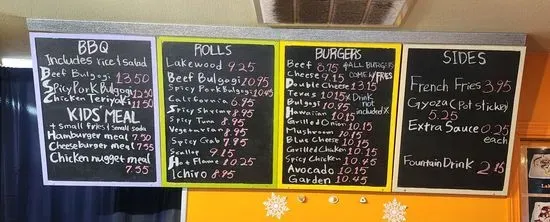 BBQ
Includes rice & salad
Beef Bulgogi 13.50
Spicy Pork Bulgogi 12.50
Chicken Teriyaki 11.50
KIDS' MEAL
+ small fries & small soda
Hamburger meal 7.50
Cheeseburger meal 7.55
Chicken nugget meal
7.55
ROLLS
Lakewood 9.25
Beef Bulgogi 10.95
Spicy Pork Bulgogi 10.45
California 6.95
Spicy Shrimp 8.95
Spicy Tuna 8.95
Vegetarian 8.95
Spicy Crab 7.95
Scallop 9.15
Hot Flame 10.25
Ichiro 8.95
BURGERS
Beef 8.75 *ALL BURGERS
Cheese 9.15 COME w/FRIES
Double Cheese 13.15
Texas 10.15 X Drink
Bulgogi 10.95 not
Hawaiian 10.15 included X
Grilled Onion 10.15
Mushroom 10.15
Blue Cheese 10.15
Grilled Chicken 10.45
Spicy Chicken 10.45
Avocado 10.15
Garden 10.45
SIDES
French Fries 3.95
Gyoza (Pot sticker)
5.25
Extra Sauce 0.25
each
Fountain Drink 2.15